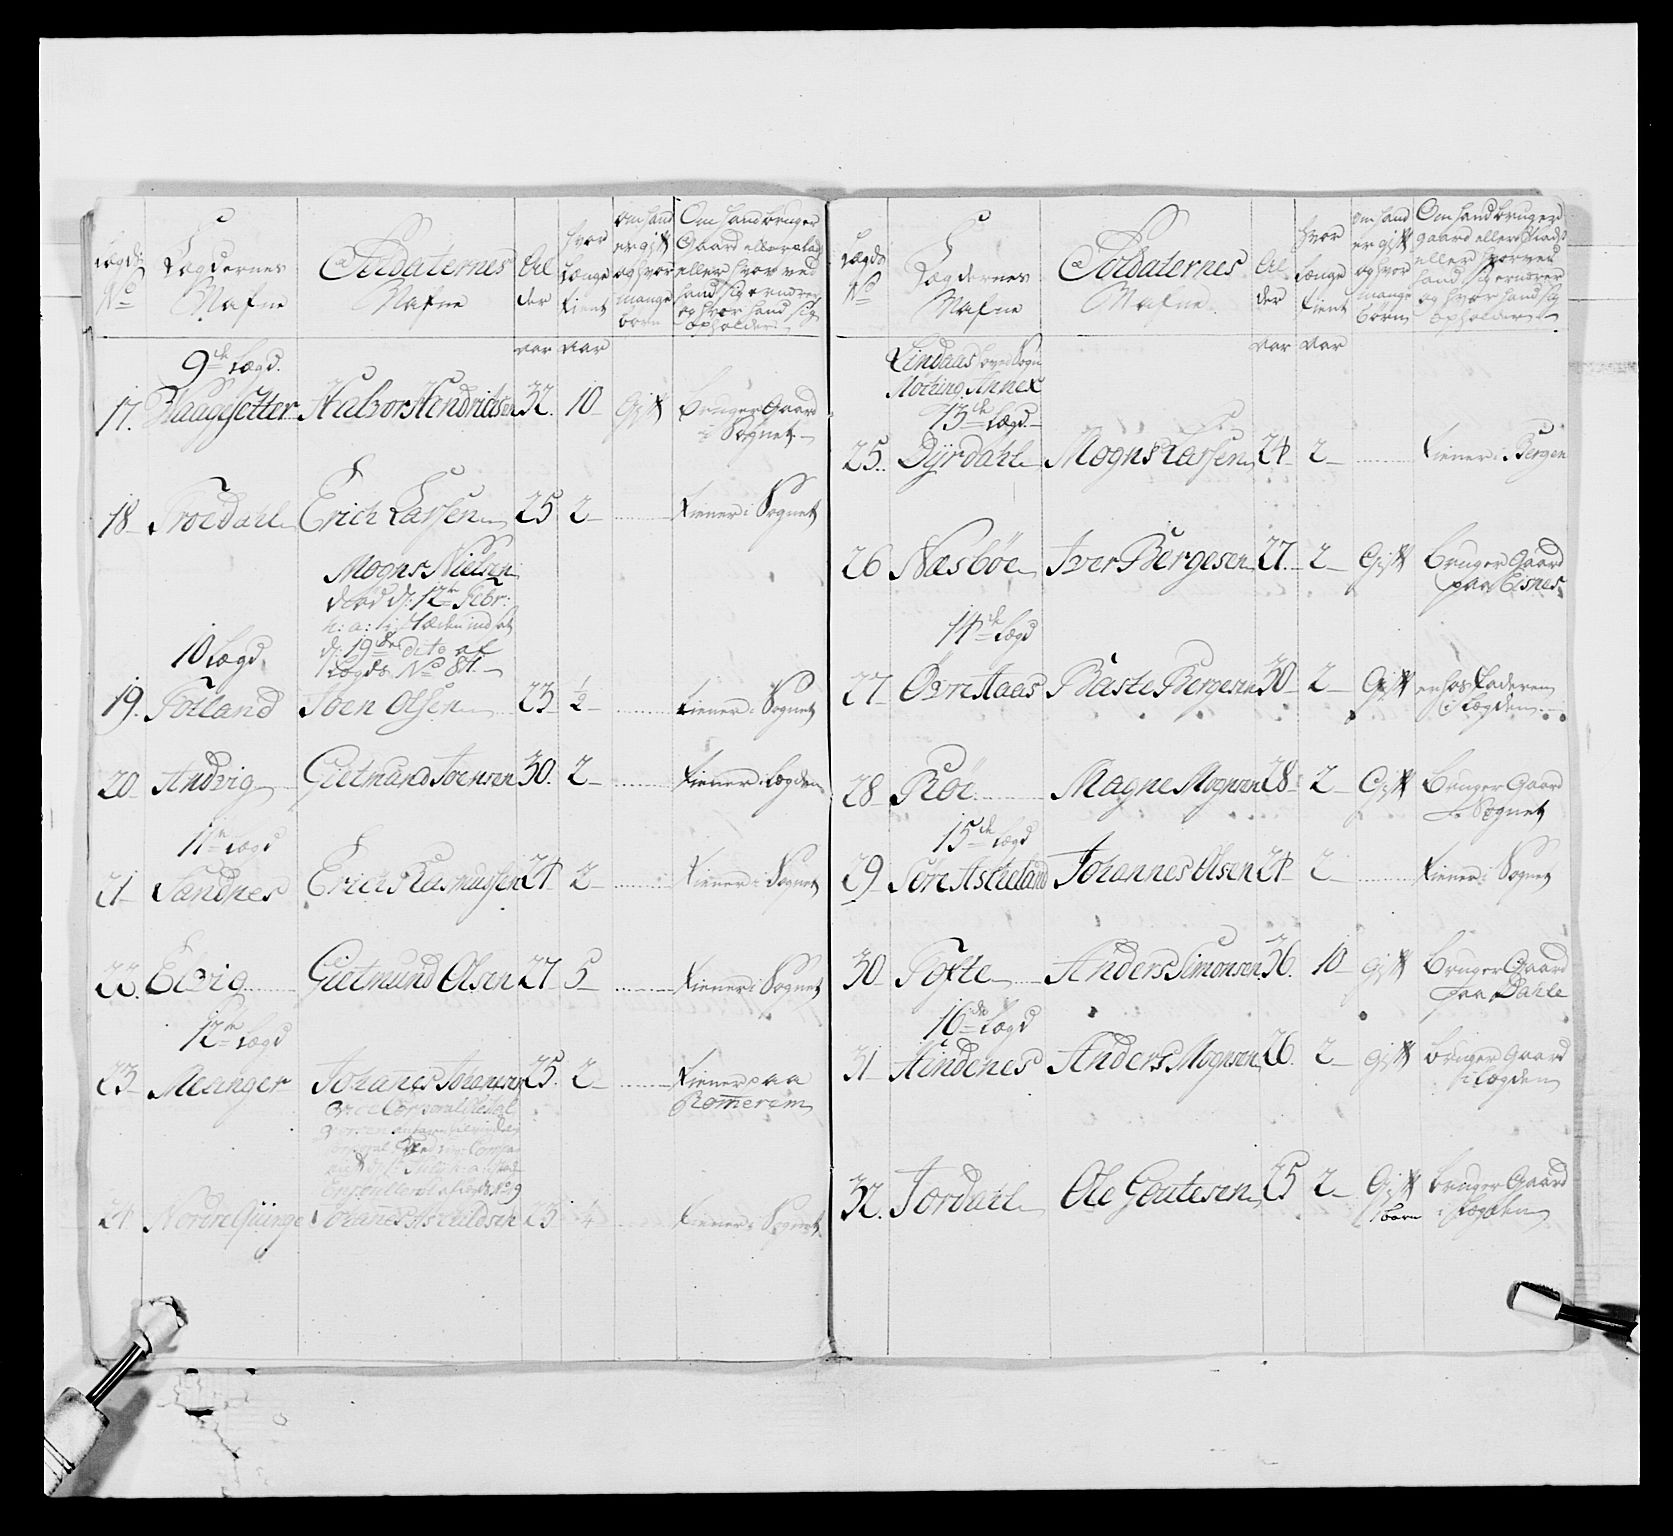 Lægds No
Lægdernes Nafne
Soldaternes Nafne
Alder
hvor Længe tient
om hand er gift og hvor mange børn
Om hand bruger Gaard eller plads eller hvor ved hand sig ernærer og hvor hand sig opholder
aar aar
9de Lægd.
17. Haugsetter Halvor Hendrichsen 32. 10 Gift bruger Gaard
i Sognet
18 Troedahl Erich Larsen 25 2 tiener i Sognet
Mogns Nielsen
død d: 12te Febr:
d: 19de dito af
Lægds No 84.
10 Lægd
19. Totland Joen Olsen 23 ½ tiener i Sognet
20 Andvig Gietmund Joensen 30. 2 tiener i Lægden
11te Lægd
21 Sandnes Erich Rasmussen 24 2 tiener i Sognet
22. Elvig Gietmund Olsen 27 5 tiener i Sognet
12te Lægd
23 Meanger Johanes Johanesen 25. 2 tiener paa
Romerem
24 Nordre Qvinge Johanes Askildsen 23 4 tiener i Sognet
Lægds No
Lægdernes Nafne
Soldaternes Nafne
Alder
hvor længe tient
om hand er gift og hvor mange børn
Om hand bruger gaard eller Plads eller hvorved hand sig ernærer og hvor hand sig opholder
aar aar
Lindaas hoved Sogn
Mofting Annex
13de Lægd.
25. Dyrdahl Mogns Larsen 24 2 tiener i Bergen
26 Næsbøe Iver Bergesen 27. 2 Gift bruger Gaard
paa Eisnes
14de Lægd
27 Øvre Aaas Baste Bergesen 30 2 Gift er hos Faderen
i Lægden
28 Røe Magne Mognsen 28 2 Gift bruger Gaard
i Sognet
15de Lægd
29 Søre Askeland Johannes Olsen 24 2 tiener i Sognet
30 Tofte Anders Simonsen 36. 10 gift bruger Gaard
paa Dahle
16de Lægd
31 Hindenes Anders Mognsen 26. 2 gift bruger Gaard
i Lægden
32. Jordahl Ole Goutesen 25 2 Gift bruger Gaard
1 barn i Lægden